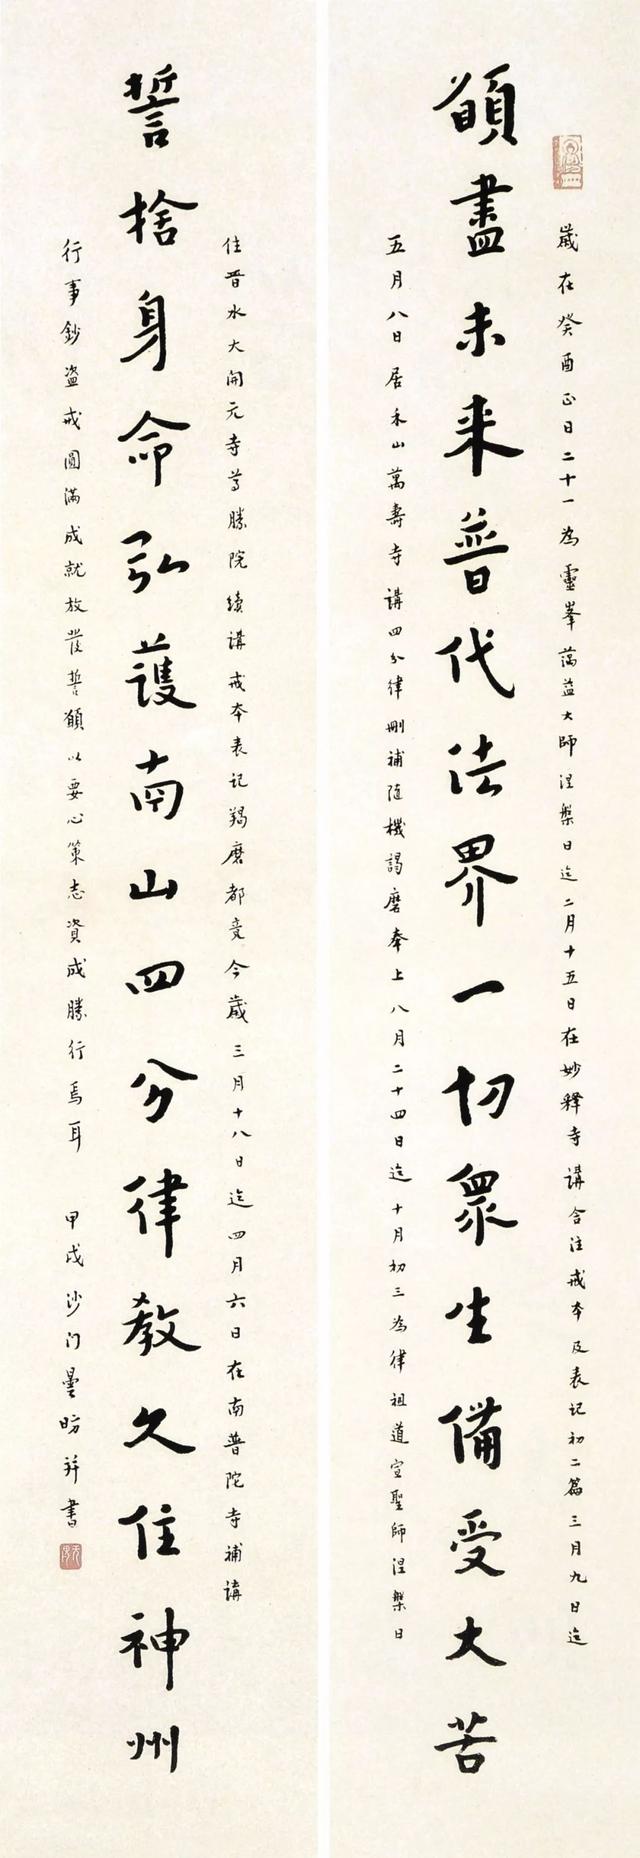 歲在癸酉正日二十一為靈峯蕅益大師涅槃日迄二月十五日在妙釋寺講含注戒本及表記初二篇三月九日迄
願盡未来普代法界一切眾生備受大苦
五月八日居禾山萬壽寺講四分律刪補隨機羯磨卷上八月二十四日迄十月初三為律祖道宣聖師涅槃日
住晉水大開元寺尊勝院續講戒本表記羯磨都竟今歲三月十八日迄四月六日在南普陀寺補講
誓捨身命弘護南山四分律教久住神州
行事鈔盜戒圓滿成就故發誓願以要心策志資成勝行焉耳 甲戌沙门曇昉并書